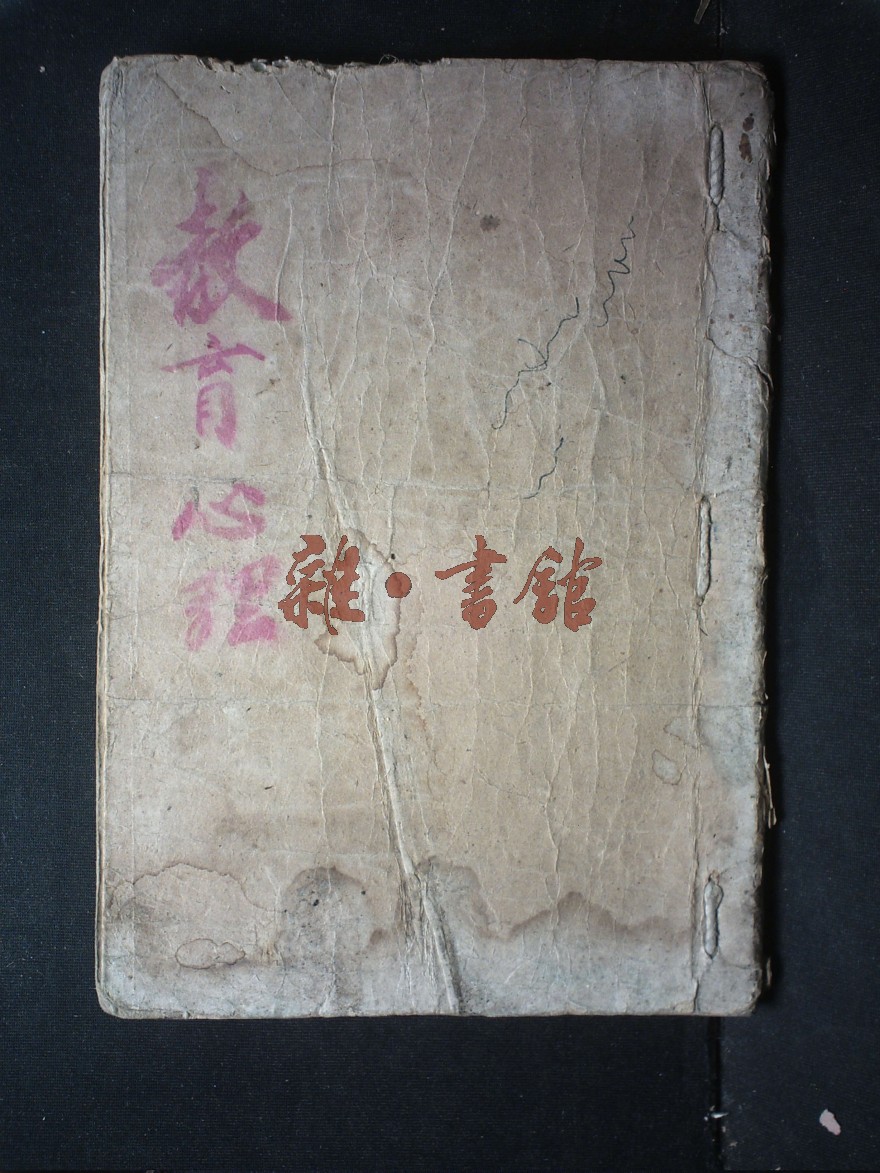 教育心理
雜·書館